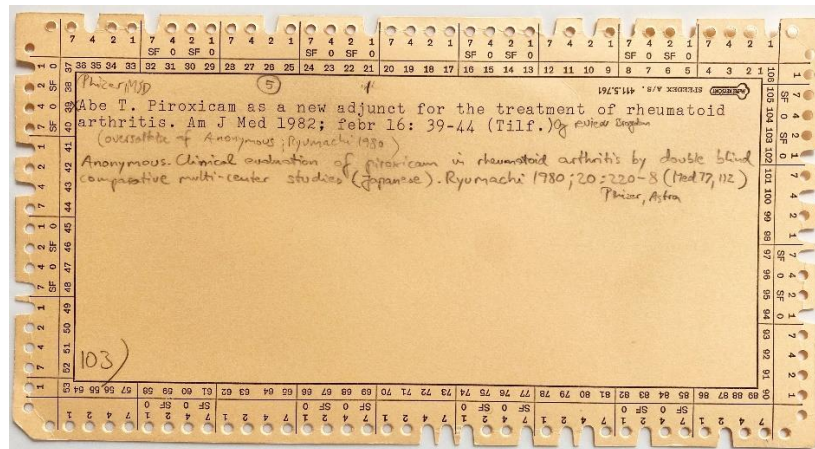 7 4 2 1 7 4 2 1 7 4 2 1 7 4 2 1 7 4 2 1 7 4 2 1 7 4 2 1 7 4 2 1 7 4 2 1
SF 0 SF 0 SF 0 SF 0 SF 0 SF 0 SF 0 SF 0
37 36 35 34 33 32 31 30 29 28 27 26 25 24 23 22 21 20 19 18 17 16 15 14 13 12 11 10 9 8 7 6 5 4 3 2 1
Phizer, MSD 5
SPEEDEX A/S 411.5.761
Abe T. Piroxicam as a new adjunct for the treatment of rheumatoid
arthritis. Am J Med 1982; febr 16: 39-44 (Tilf.) Og
(oversættelse af Anonymous; Ryumachi 1980)
Anonymous. Clinical evaluation of piroxicam in rheumatoid arthritis by double blind
comparative multi-center studies (Japanese). Ryumachi 1980; 20: 220-8 (Med 77, 112)
Phizer, Astra
103)
38 39 40 41 42 43 44 45 46 47 48 49 50 51 52
53 54 55 56 57 58 59 60 61 62 63 64 65 66 67 68 69 70 71 72 73 74 75 76 77 78 79 80 81 82 83 84 85 86 87 88 89 90
91 92 93 94 95 96 97 98 99 100 101 102 103 104 105 106